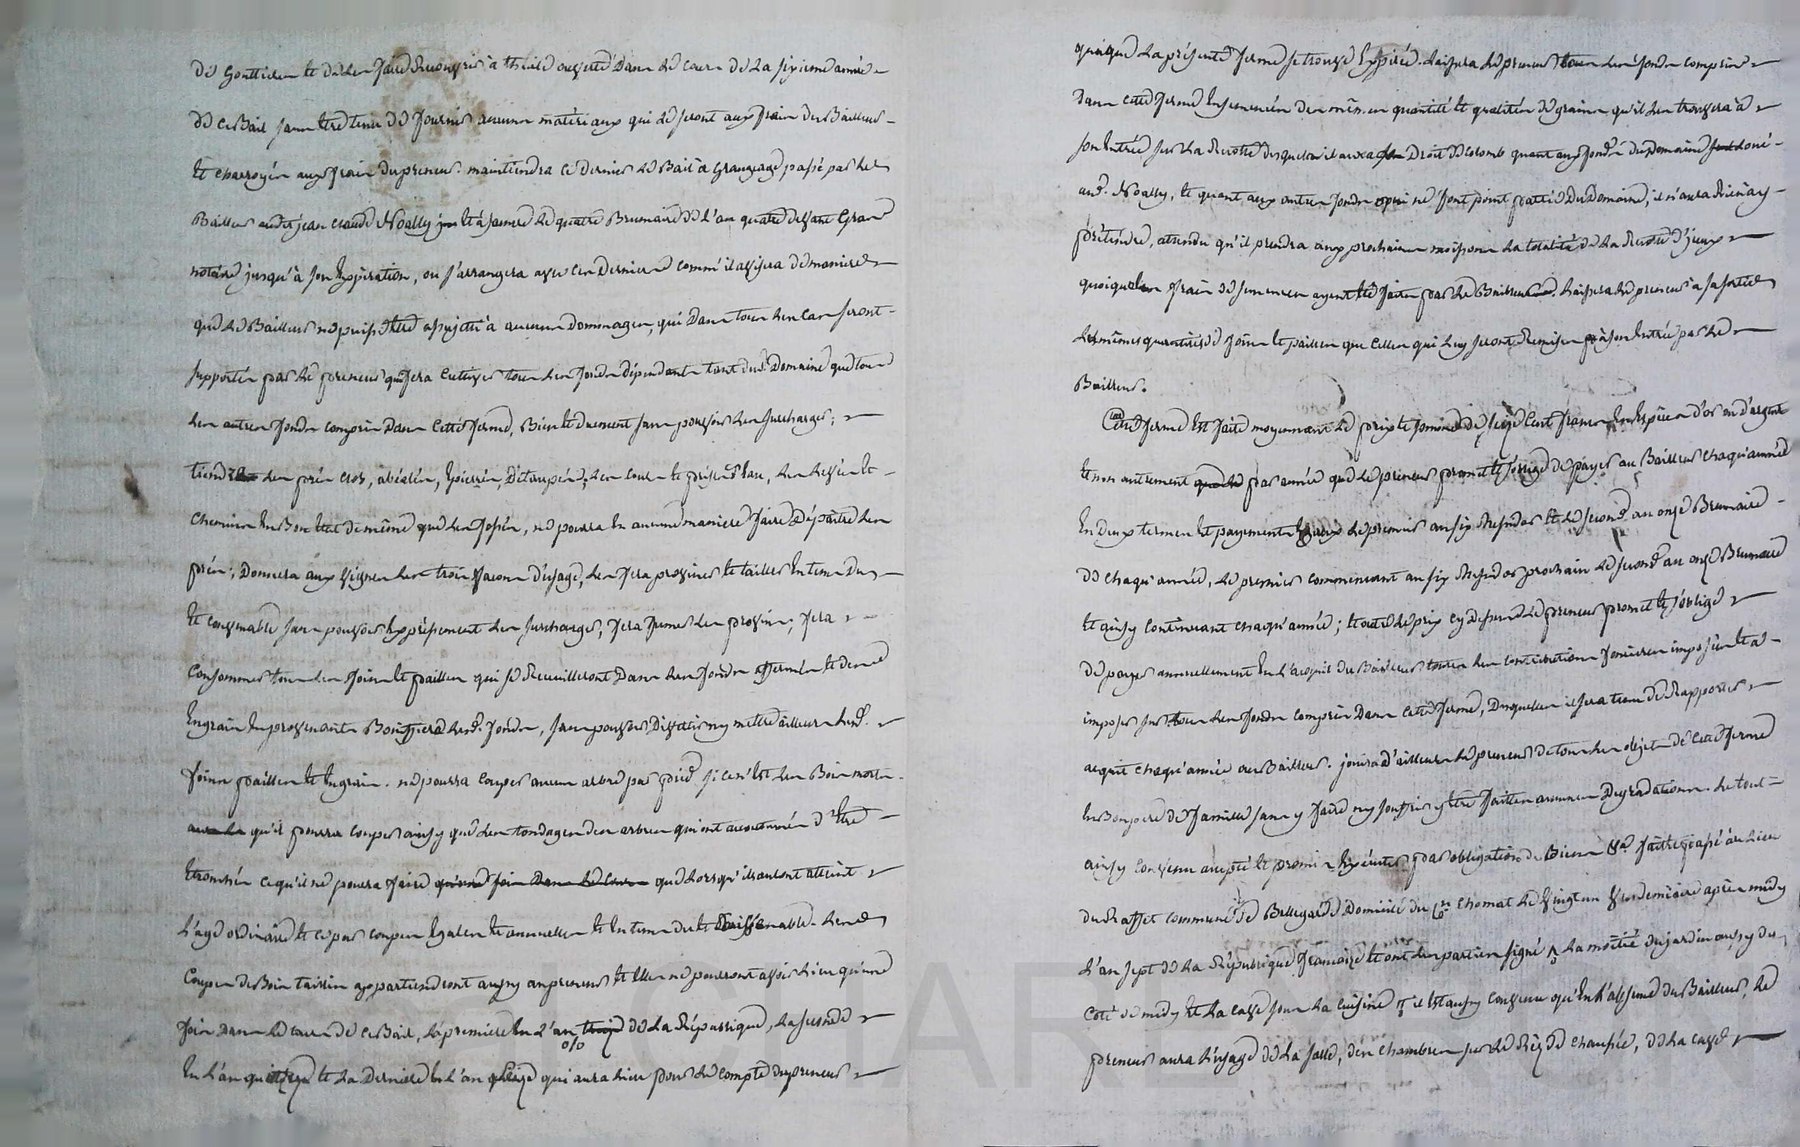 de gouttieres et de les faire recouvrir à theile ouverte dans le cours de la sixieme année
de ce Bail sans etre tenu de fournir aucuns matériaux qui le seront aux frais du Bailleur
et charroyés aux frais du preneur. maintiendra ce dernier le Bail à Grangeage passé par le
Bailleur audit jean claude Noally le quatre Brumaire de l'an quatre devant Gras
notaire jusqu'à son Expiration, ou s'arrangera avec ce dernier comm'il avisera de maniere
que le Bailleur ne puisse etre assujetti à aucuns Dommages, qui dans tous les cas seront
supportés par le preneur qui fera cultiver tous les fonds dépendants tant dud. Domaine que tous
les autres fonds compris dans cette ferme, Bien et duement sans pouvoir les surcharger;
tiendra les prés clos, Epierrés, Détaupés, les cours et prises d'Eau, les et
chemins En Bon Etat de même que les fossés, ne pourra En aucune maniere faire Dépaitre les
prés; Donnera aux vignes les trois façons d'usage, les fera proviner et tailler En tems Du
et convenable sans pouvoir Expressement les surcharger, fera fumer les provins; fera
Consommer tous les foins et pailles qui se Recueilleront Dans les fonds affermés et dont
Engrais En provenants lesd. fonds, sans pouvoir Divertir ny mettre ailleurs lesd.
foins pailles et Engrais. ne pourra couper aucun arbre par pied si ce n'est les Bois morts
qu'il pourra couper ainsy que les tondages des arbres qui ont accoutumés d'Etre
Etronchés ce qu'il ne pourra faire que lorsqu'ils auront atteint
L'age ordinaire et ce par coupes Egales et annuelles et En tems du et Convenable. Les
Coupes de Bois taillis appartiendront aussy au preneur et Elles ne pourront avoir lieu qu'une
fois dans le cours de ce Bail, la premiere En L'an de La République, la seconde
En L'an et La Derniere En L'an qui aura lieu pour le compte du preneur
quoique La présente ferme se trouve Expirée. Laissera le preneur les fonds compris
Dans cette ferme Ensemencés des mêmes quantité et qualités de grains qu'il les trouvera à
son Entrée sur La Recolte desquels il aura Droit de Colomb quant aux fonds du Domaine
aud. Noally, et quant aux autres fonds qui ne font point partie Du Domaine, il n'aura Rien à y
prétendre, attendu qu'il prendra aux prochaines moissons La totalité de La Recolte d'iceux
quoique les frais de semences ayent été faits par le Bailleur. Laissera le preneur à sa sortie
Les mêmes quantités de foins et pailles que Celles qui luy seront Remises à son Entrée par le
Bailleur.
Cette ferme Est faite moyennant le prix et somme de seize Cent francs En Espèces d'or ou d'argent
et non autrement par année que le preneur promet et s'oblige de payer au Bailleur chaqu'année
En Deux termes Et payements Egaux le premier au six Messidor Et le second au onze Brumaire
de chaqu'année, le premier commencant au six Messidor prochain le second au onze Brumaire
et ainsy Continuant chaqu'année; Et outre le prix cy Dessus le preneur promet et s'oblige
de payer annuellement En L'acquit du Bailleur toutes les contributions foncieres imposées et à
imposer sur tous les fonds compris Dans cette ferme, Desquelles il sera tenu de Rapporter
acquit chaqu'année au Bailleur. jouira d'ailleurs le preneur de tous les objets de cette ferme
En Bon pere de famille sans y faire ny souffrir y Etre faittes aucunes Degradations. Le tout
ainsy Convenu accepté et promis Exécuter par obligation de Biens &a. fait et passé au lieu
du Raffet commune de Bellegarde Domicile du Cen. Chomat le vingt un Vendemiaire après midy
L'an sept de La République française Et ont les parties signé La moitié du jardin au
Coté de midy Et La Cave sous La Cuisine il Est aussy Convenu qu'En L'absence du Bailleur, le
preneur aura l'usage de La salle, des chambres sur le Réz de chaussée, de La Cave